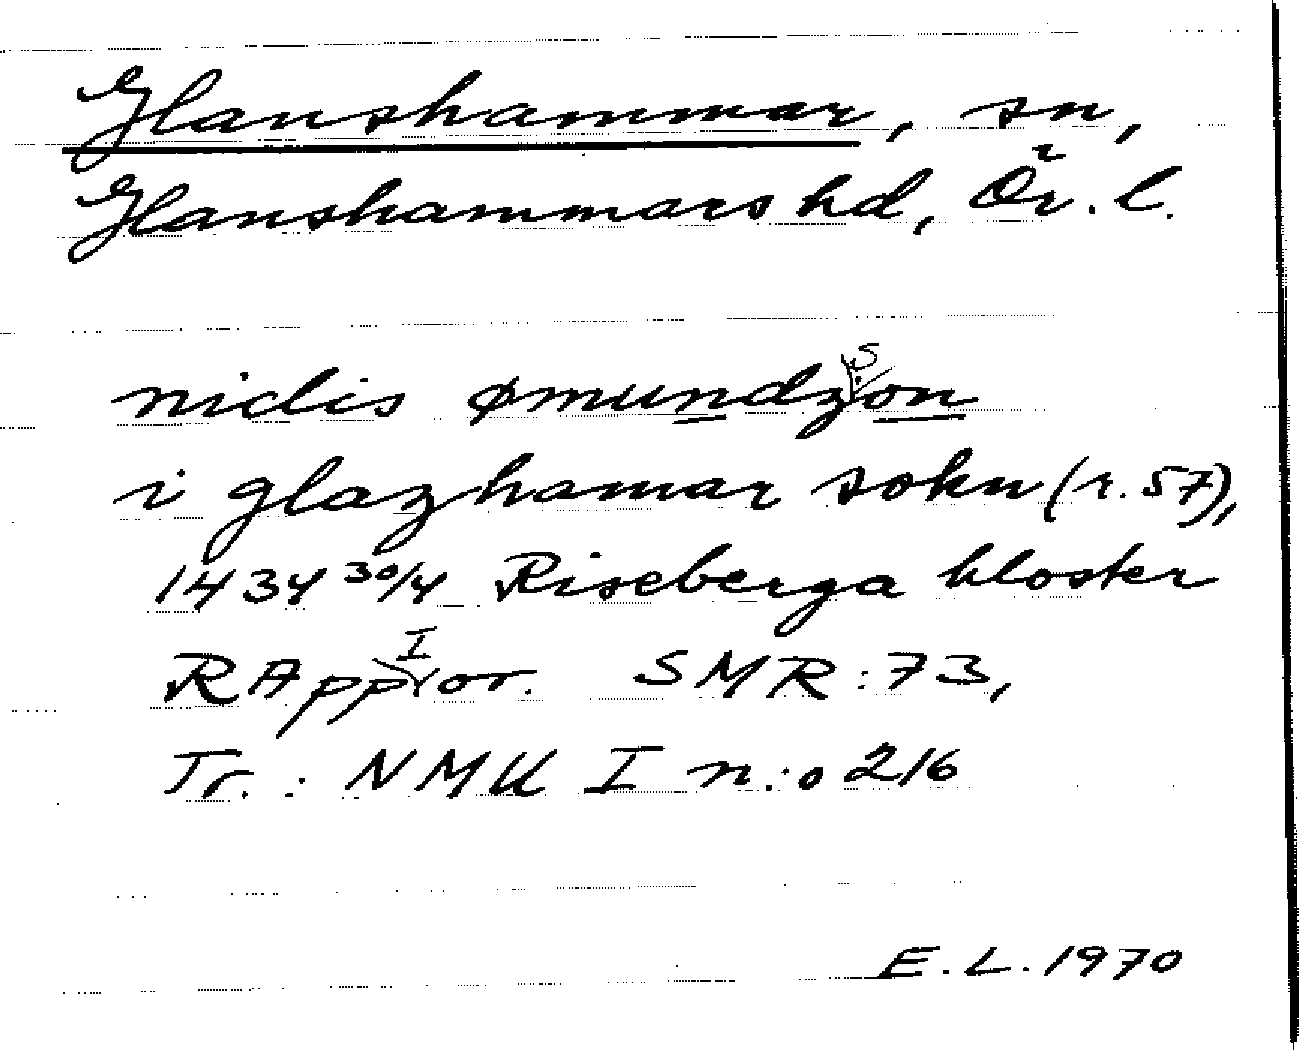 Glanshammar, sn,
Glanshammars hd, Ör. l.
niclis ømundzson
i glazhamar sokn (r. 57),
1434 30/4 Riseberga kloster
RAppIor. SMR: 73,
Tr.: NMU I n:o 216
E.L. 1970